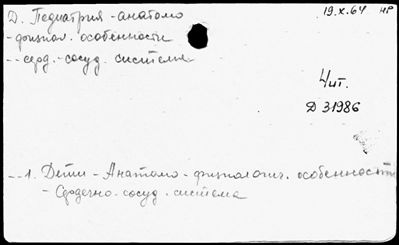 Д. Педиатрия - анатомо
19.X.64 НР
- физиол. особенности
-- серд.-сосуд. система
Чит.
Д 31986
-- 1. Дети - Анатомо-физиологич. особенности
- Сердечно-сосуд. система